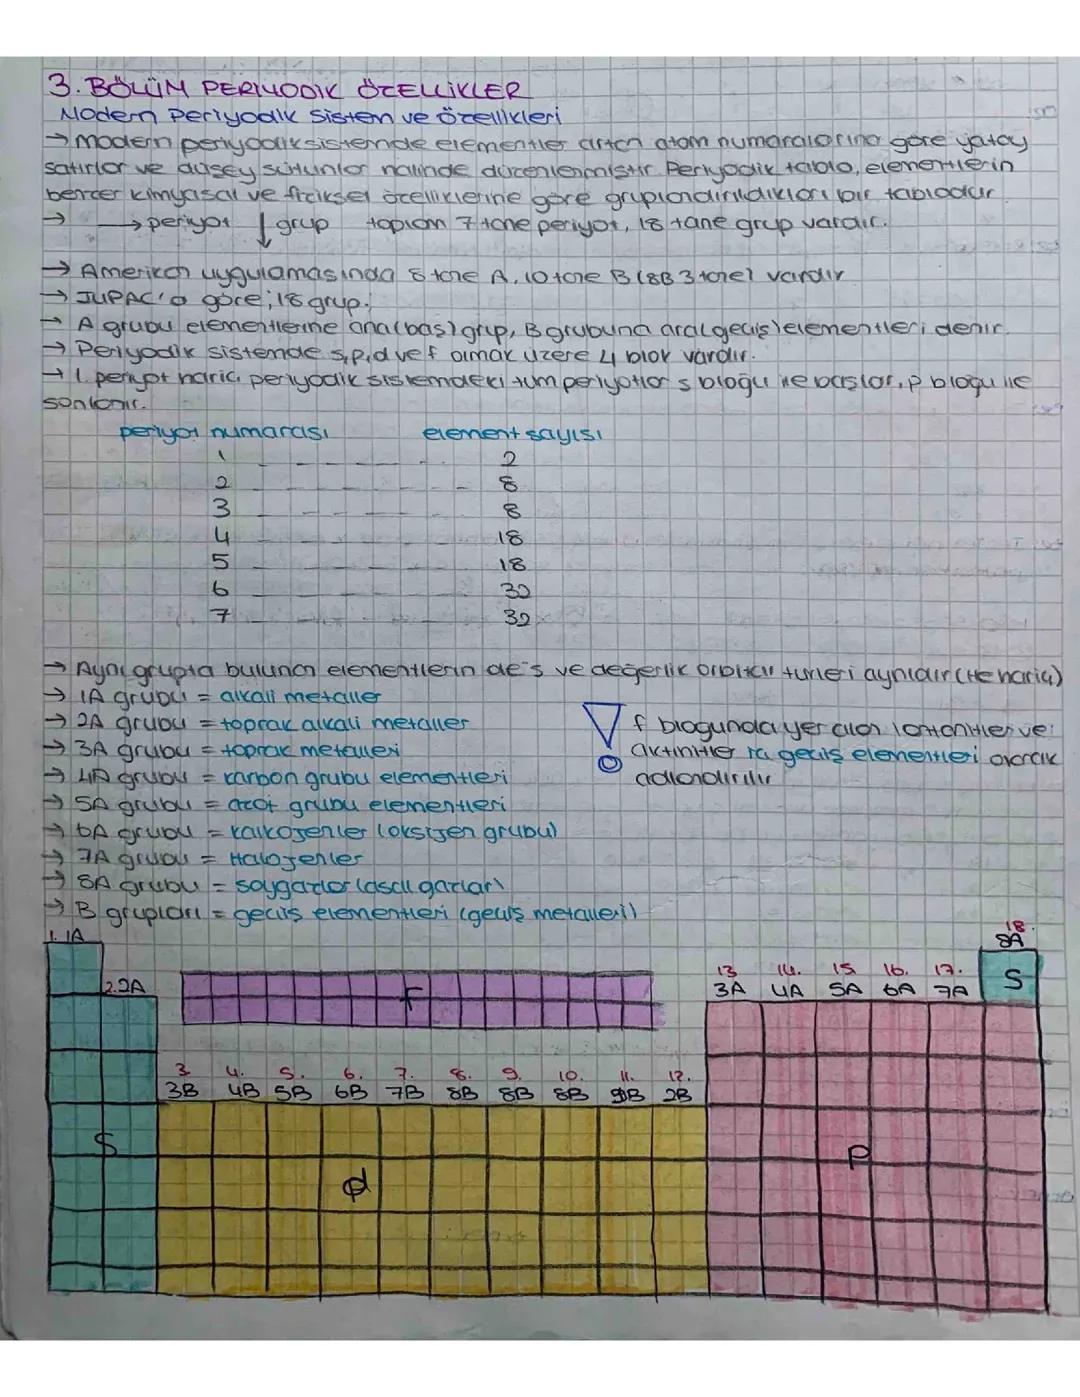 3. BÖLÜM PERİYODİK ÖZELLİKLER
Modern Periyodik Sistem ve Özellikleri
→ modern periyodik sistemde elementler artan atom numaralarına göre yatay
satırlar ve düşey sütunlar halinde düzenlenmiştir. Periyodik tablo, elementlerin
benzer kimyasal ve fiziksel özelliklerine göre gruplandırıldıkları bir tablodur.
→ → periyot ↓ grup toplam 7 tane periyot, 18 tane grup vardır.
→ Amerikan uygulamasında 8 tane A, 10 tane B (8B 3 tane) vardır
→ IUPAC'a göre; 18 grup.
→ A grubu elementlerine ana(baş) grup, B grubuna ara(geçiş) elementleri denir.
→ Periyodik sistemde s,p,d ve f olmak üzere 4 blok vardır.
→ 1. periyot hariç periyodik sistemdeki tüm periyotlar s bloğu ile başlar, p bloğu ile
sonlanır.
periyot numarası element sayısı
1 2
2 8
3 8
4 18
5 18
6 32
7 32
→ Aynı grupta bulunan elementlerin de's ve değerlik orbital türleri aynıdır (He hariç)
→ 1A grubu = alkali metaller
→ 2A grubu = toprak alkali metaller
→ 3A grubu = toprak metalleri
→ 4A grubu = karbon grubu elementleri
→ 5A grubu = azot grubu elementleri
→ 6A grubu = kalkojenler (oksijen grubu)
→ 7A grubu = Halojenler
→ 8A grubu = soygazlar (asal gazlar)
→ B grupları = geçiş elementleri (geçiş metalleri)
f bloğunda yer alan lantanitler ve
aktinitler iç geçiş elementleri olarak
adlandırılır
1. 1A
2. 2A
18.
8A
13 14. 15 16. 17.
3A 4A 5A 6A 7A
S
F
3 4. 5. 6. 7. 8. 9. 10. 11. 12.
3B 4B 5B 6B 7B 8B 8B 8B 1B 2B
S
d
P